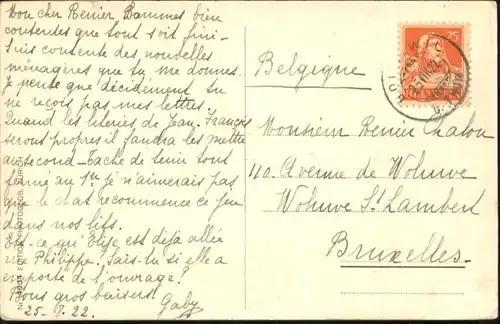 Mon cher Renier Sommes bien
contentes que tout soit fini -
Suis contente des nouvelles
ménagères que tu me donnes.
Je pense que décidément tu
ne reçois pas mes lettres.
Quand les literies de Jean-François
seront propres il faudra les mettre
au second - tâche de tenir tout
fermé au 1er je n'aimerais pas
que le chat recommence ce jeu
dans nos lits.
Est-ce qu'Elise est déjà allée
chez Philippe? Sais-tu si elle a
emporté de l'ouvrage?
Bons gros baisers
Gaby
25-8.22
Belgique
25
HELVETIA
Monsieur Renier Chalon
110. Avenue de Woluwe
Woluwe St Lambert
Bruxelles.